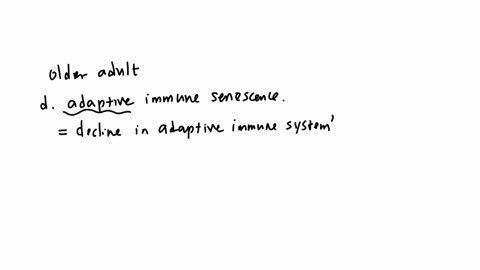 older adult
d. adaptive immune senescence.
= decline in adaptive immune system'